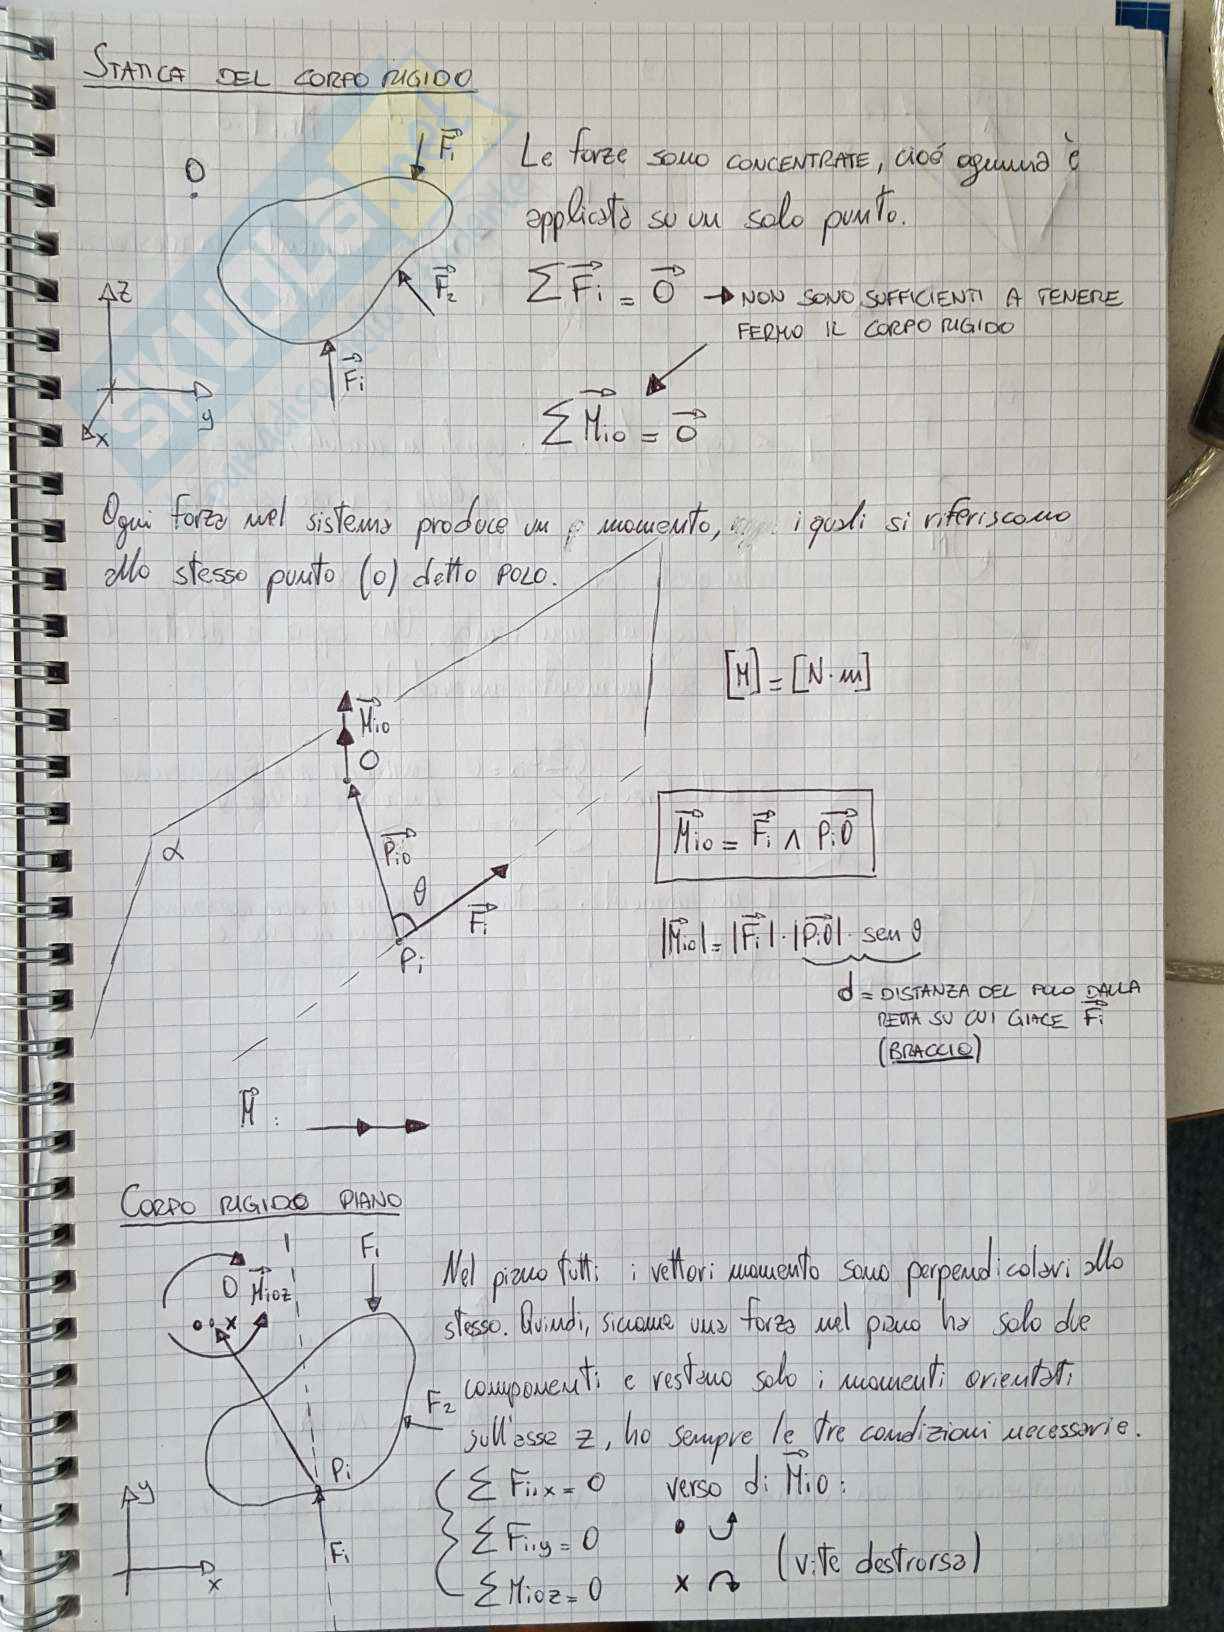 STATICA DEL CORPO RIGIDO
O
F₁
Le forze sono CONCENTRATE, cioé ognuna è
applicata su un solo punto.
F₂
∑ Fi = 0 → NON SONO SUFFICIENTI A TENERE
FERMO IL CORPO RIGIDO
z
y
x
Fi
∑ Mio = 0
Ogni forza nel sistema produce un momento, i quali si riferiscono
allo stesso punto (O) detto POLO.
[M] = [N·m]
Mio
O
α
PiO
θ
Fi
Pi
Mio = Fi ∧ PiO
|Mio| = |Fi| · |PiO| · sen θ
d = DISTANZA DEL POLO DALLA
RETTA SU CUI GIACE Fi
(BRACCIO)
M :
CORPO RIGIDO PIANO
O Mioz
F₁
Nel piano tutti i vettori momento sono perpendicolari allo
stesso. Quindi, siccome una forza nel piano ha solo due
componenti e restano solo i momenti orientati
F₂
sull'asse z, ho sempre le tre condizioni necessarie.
Pi
Fi
y
x
∑ Fi,x = 0
∑ Fi,y = 0
∑ Mioz = 0
verso di Mio :
• ⤴
x ↷
(vite destrorsa)
SKUOLA.net